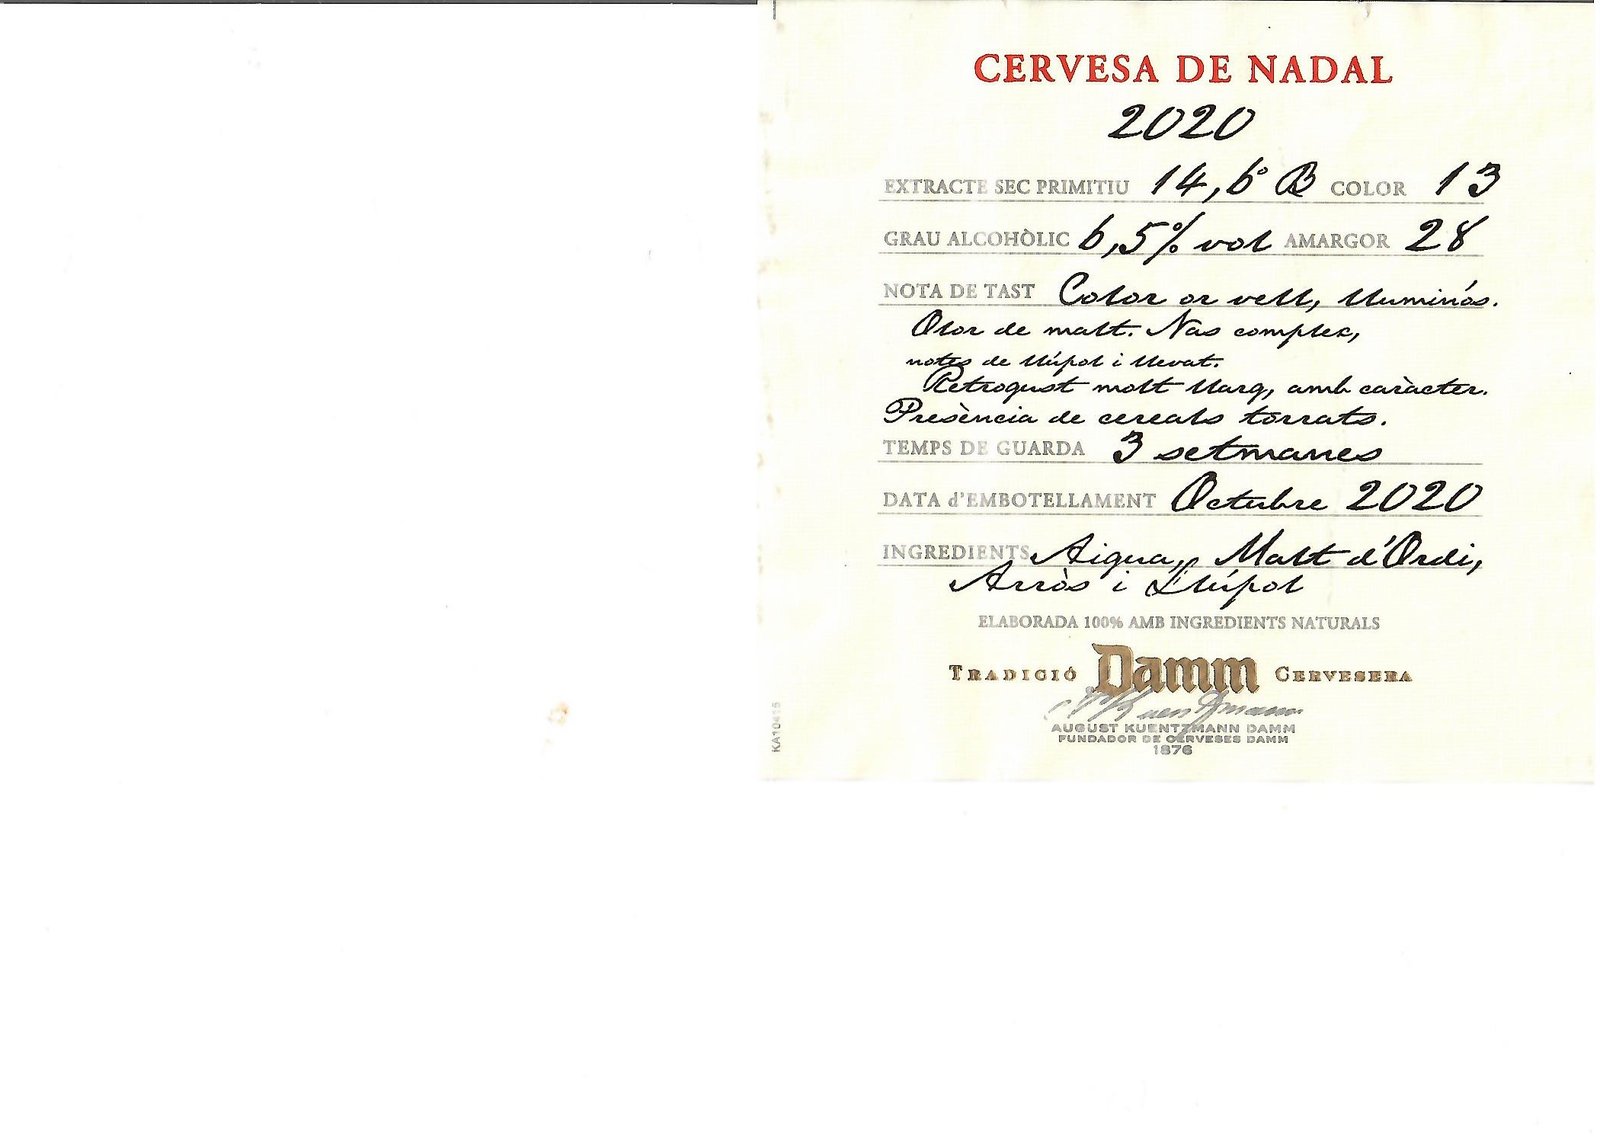 CERVESA DE NADAL
2020
EXTRACTE SEC PRIMITIU 14,6° B COLOR 13
GRAU ALCOHÒLIC 6,5% vol AMARGOR 28
NOTA DE TAST Color or vell, lluminós.
Olor de malt. Nas complex,
notes de llúpol i llevat.
Retrogust molt llarg, amb caràcter.
Presència de cereals torrats.
TEMPS DE GUARDA 3 setmanes
DATA d'EMBOTELLAMENT Octubre 2020
INGREDIENTS Aigua, Malt d'Ordi,
Arròs i Llúpol
ELABORADA 100% AMB INGREDIENTS NATURALS
TRADICIÓ Damm CERVESERA
AUGUST KUENTZMANN DAMM
FUNDADOR DE CERVESES DAMM
1876
KA10415